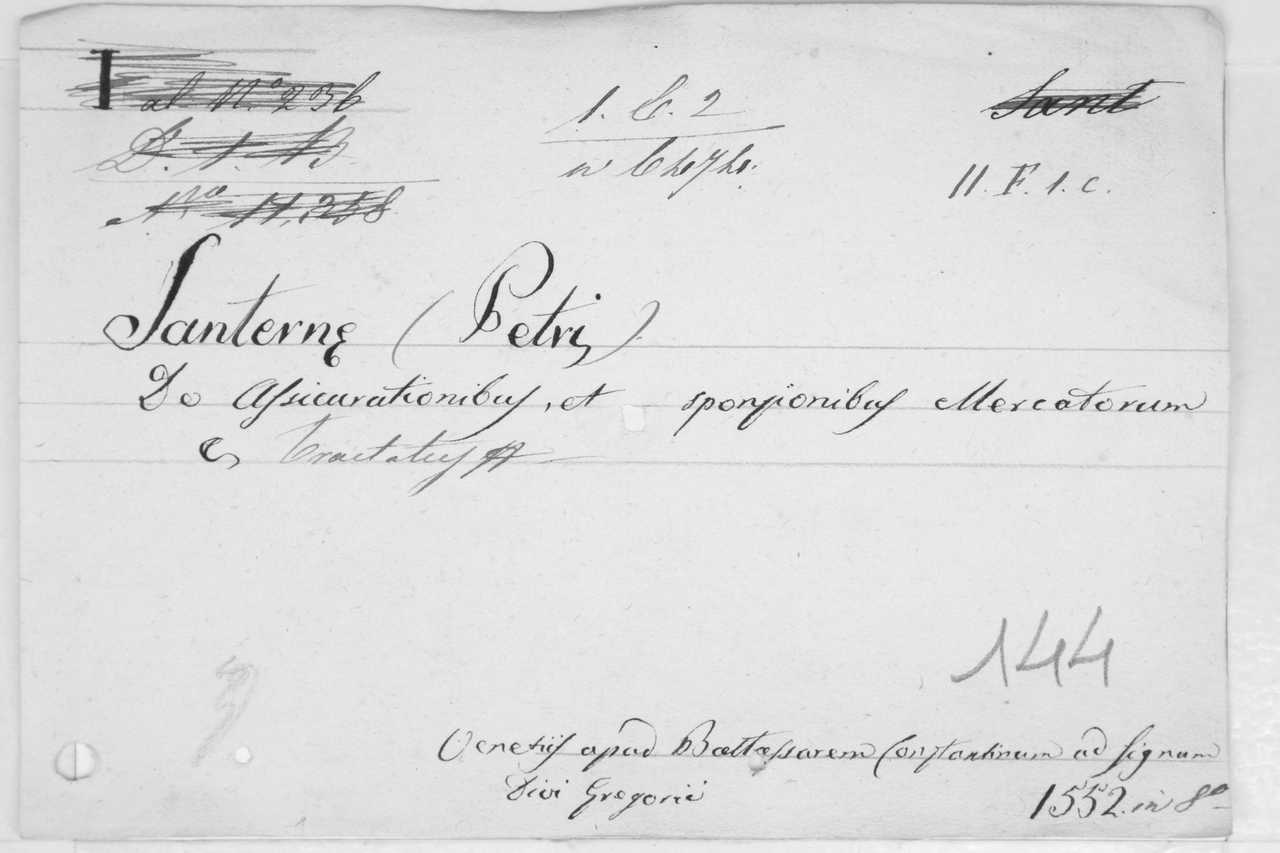 al N.º 236
1. C. 2
Sant
D. 1. B
11. F. 1. c.
N.ro 11,258
Santernę (Petri)
De Assicurationibus, et sponsionibus Mercatorum
Tractatus
144
Venetijs apud Baltassarem Constantinum ad signum
Divi Gregorii
1552. in 8º